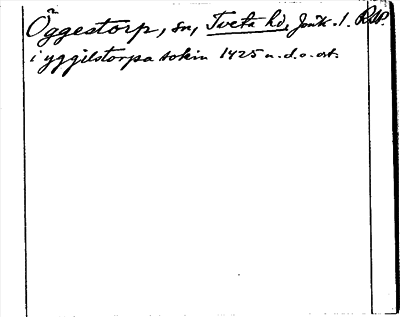 Öggestorp, sn, Tveta hd, Jönk. l. RAP.
i yggilstorpa sokin 1425 u.d.o. ort.